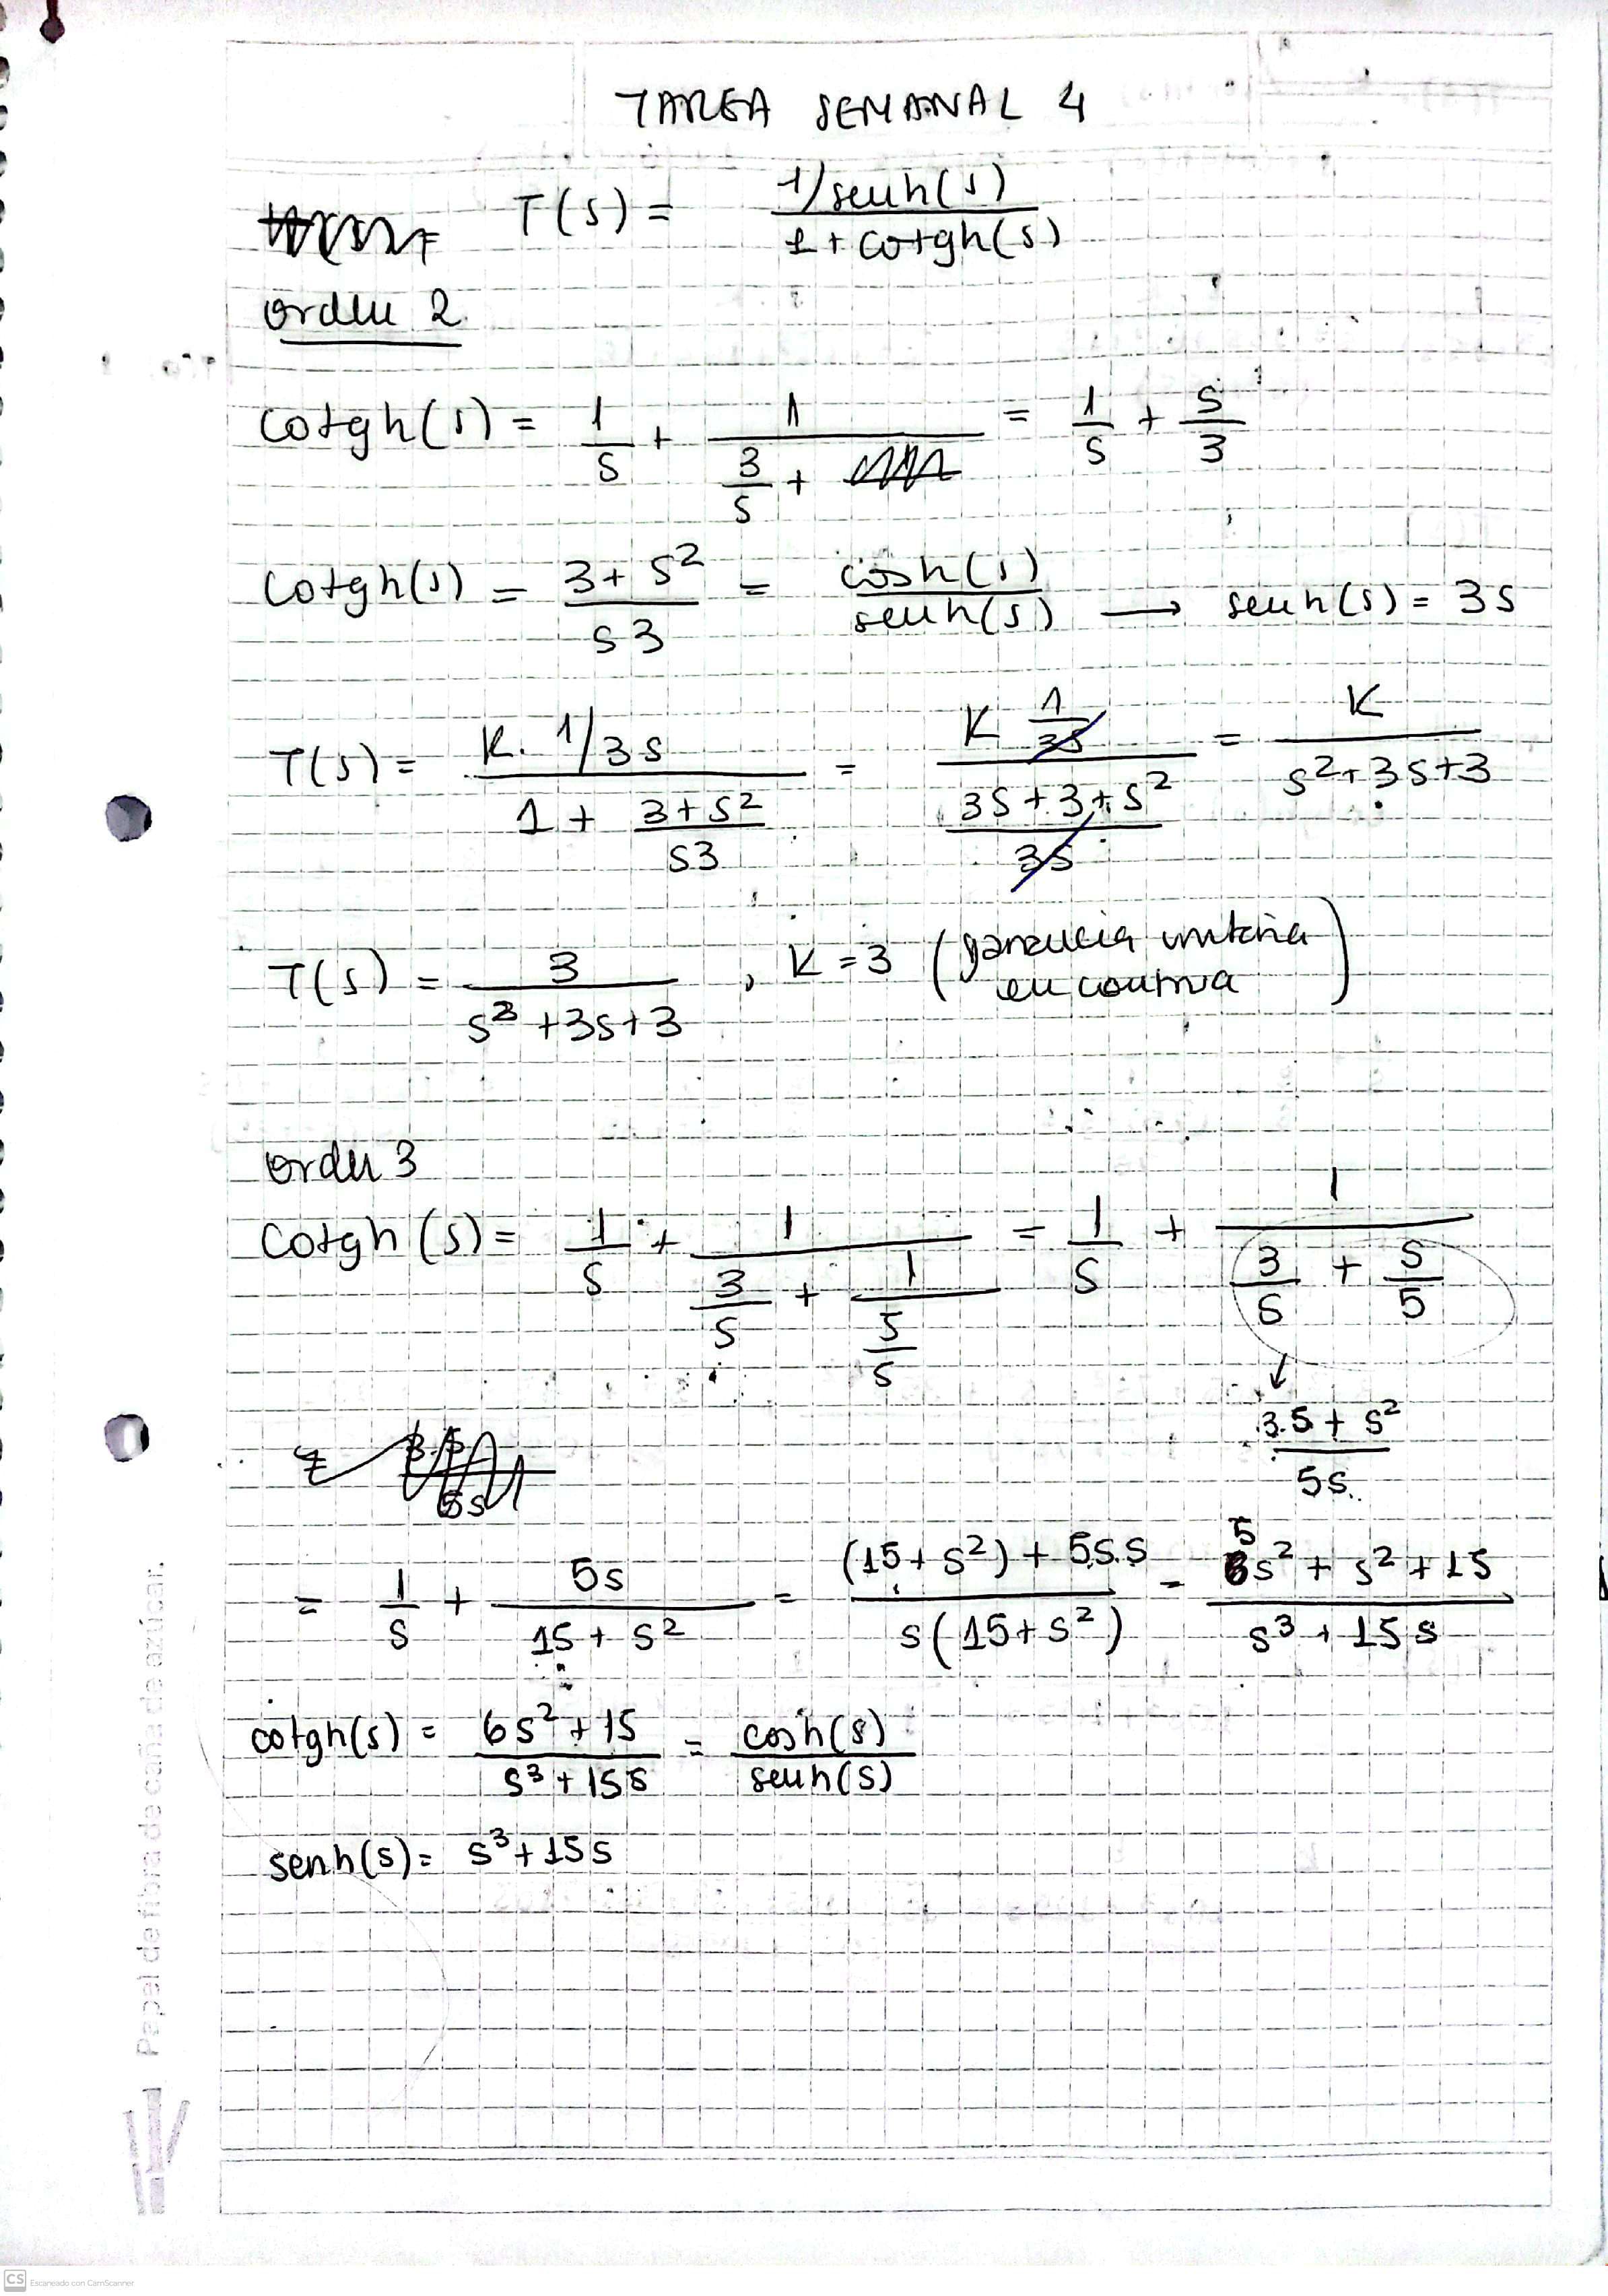 TAREA SEMANAL 4
T(s) = (1/senh(s)) / (1 + cotgh(s))
orden 2
cotgh(s) = 1/s + 1/(3/s + ) = 1/s + s/3
cotgh(s) = (3 + s²)/(s3) = cosh(s)/senh(s) → senh(s) = 3s
T(s) = (K. 1/3s)/(1 + (3 + s²)/(s3)) = (K 1/3s)/((3s + 3 + s²)/3s) = K/(s² + 3s + 3)
T(s) = 3/(s² + 3s + 3) , K = 3 (ganancia unitaria en continua)
orden 3
cotgh(s) = 1/s + 1/(3/s + 1/(5/s)) = 1/s + 1/(3/s + s/5)
↓
(3.5 + s²)/5s
= 1/s + 5s/(15 + s²) = ((15 + s²) + 5s.s)/(s(15 + s²)) = (5s² + s² + 15)/(s³ + 15s)
cotgh(s) = (6s² + 15)/(s³ + 15s) = cosh(s)/senh(s)
senh(s) = s³ + 15s
Papel de fibra de caña de azúcar.
CS Escaneado con CamScanner